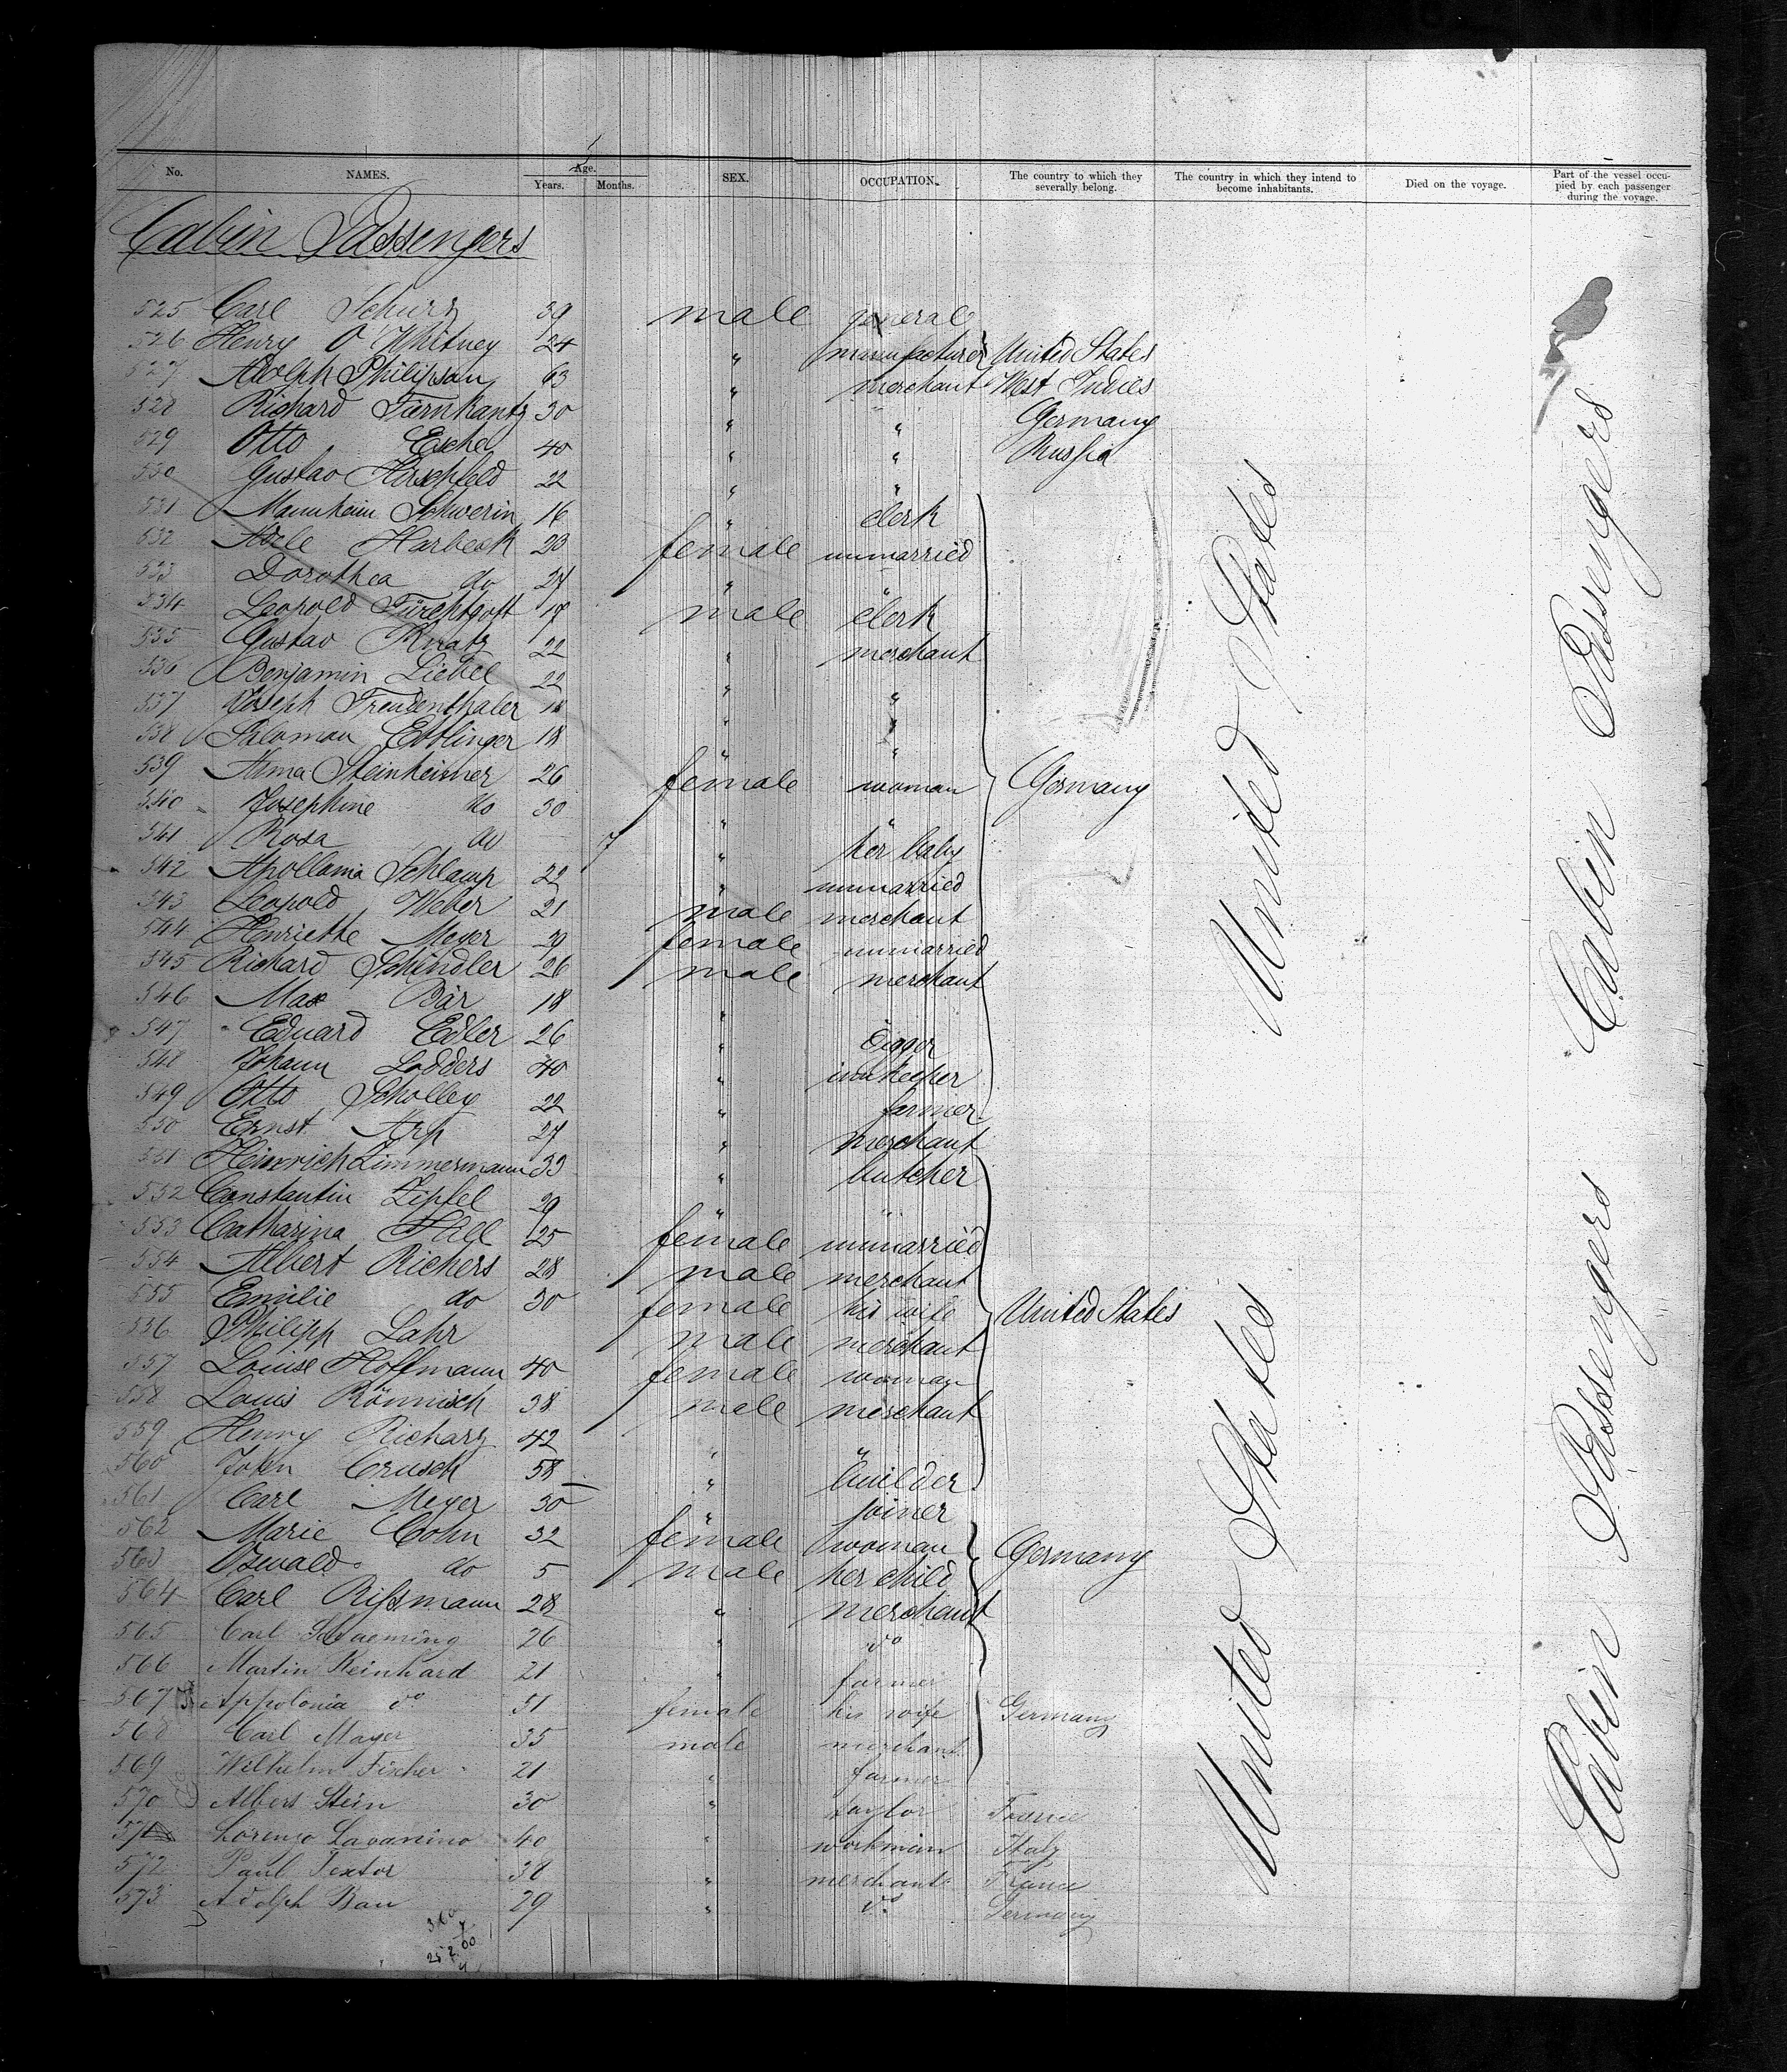 No. NAMES. Age. Years. Months. SEX. OCCUPATION. The country to which they severally belong. The country in which they intend to become inhabitants. Died on the voyage. Part of the vessel occupied by each passenger during the voyage.
Cabin Passengers
525 Carl Schurz 39 male general
526 Henry O Whitney 24 " manufacturer United States
527 Adolph Philipsau 63 " merchant West Indies
528 Richard Türnkantz 30 " " Germany
529 Otto Esche 40 " " Russia
530 Gustav Hirschfeld 22 " "
531 Mannheim Schwerin 16 " clerk
532 Adele Harbeck 23 female unmarried
533 Dorothea do 27 " "
534 Leopold Fürchtgott 17 male clerk
535 Gustav Knatz 22 " merchant
536 Benjamin Liebel 22 " "
537 Joseph Freudenthaler 18 " "
538 Saloman Ettlinger 18 " "
539 Alma Steinheimer 26 female woman Germany
540 Josephine do 30 " "
541 Rosa do 7 " her baby
542 Apollonia Schlamp 22 " unmarried
543 Leopold Weber 21 male merchant
544 Henriette Meyer 29 female unmarried
545 Richard Schindler 26 male merchant
546 Max Bär 18 " "
547 Eduard Edler 26 " digger
548 Johann Lodders 40 " innkeeper
549 Otto Scholley 22 " farmer
550 Ernst Arp 27 " merchant
551 Heinrich Zimmermann 33 " butcher
552 Constantin Zipfel 29 " "
553 Catharina Häll 25 female unmarried
554 Albert Richers 28 male merchant
555 Emilie do 30 female his wife United States
556 Philipp Lahr male merchant
557 Louise Hoffmann 40 female woman
558 Louis Rönnisch 38 male merchant
559 Henry Richarz 42 " "
560 John Crusch 58 " builder
561 Carl Meyer 30 joiner
562 Marie Cohn 32 female woman Germany
563 Oswald do 5 male her child
564 Carl Rißmann 28 " merchant
565 Carl 26 " do
566 Martin Reinhard 21 " farmer
567 Appolonia do 31 female his wife Germany
568 Carl Mayer 35 male merchant
569 Wilhelm Fischer 21 " farmer
570 Albert Stein 30 " taylor France
571 Lorenzo Lavanino 40 " workman Italy
572 Paul Textor 38 " merchant France
573 Adolph Bau 29 " do Germany
United States
United States
Cabin Passengers
Cabin Passengers